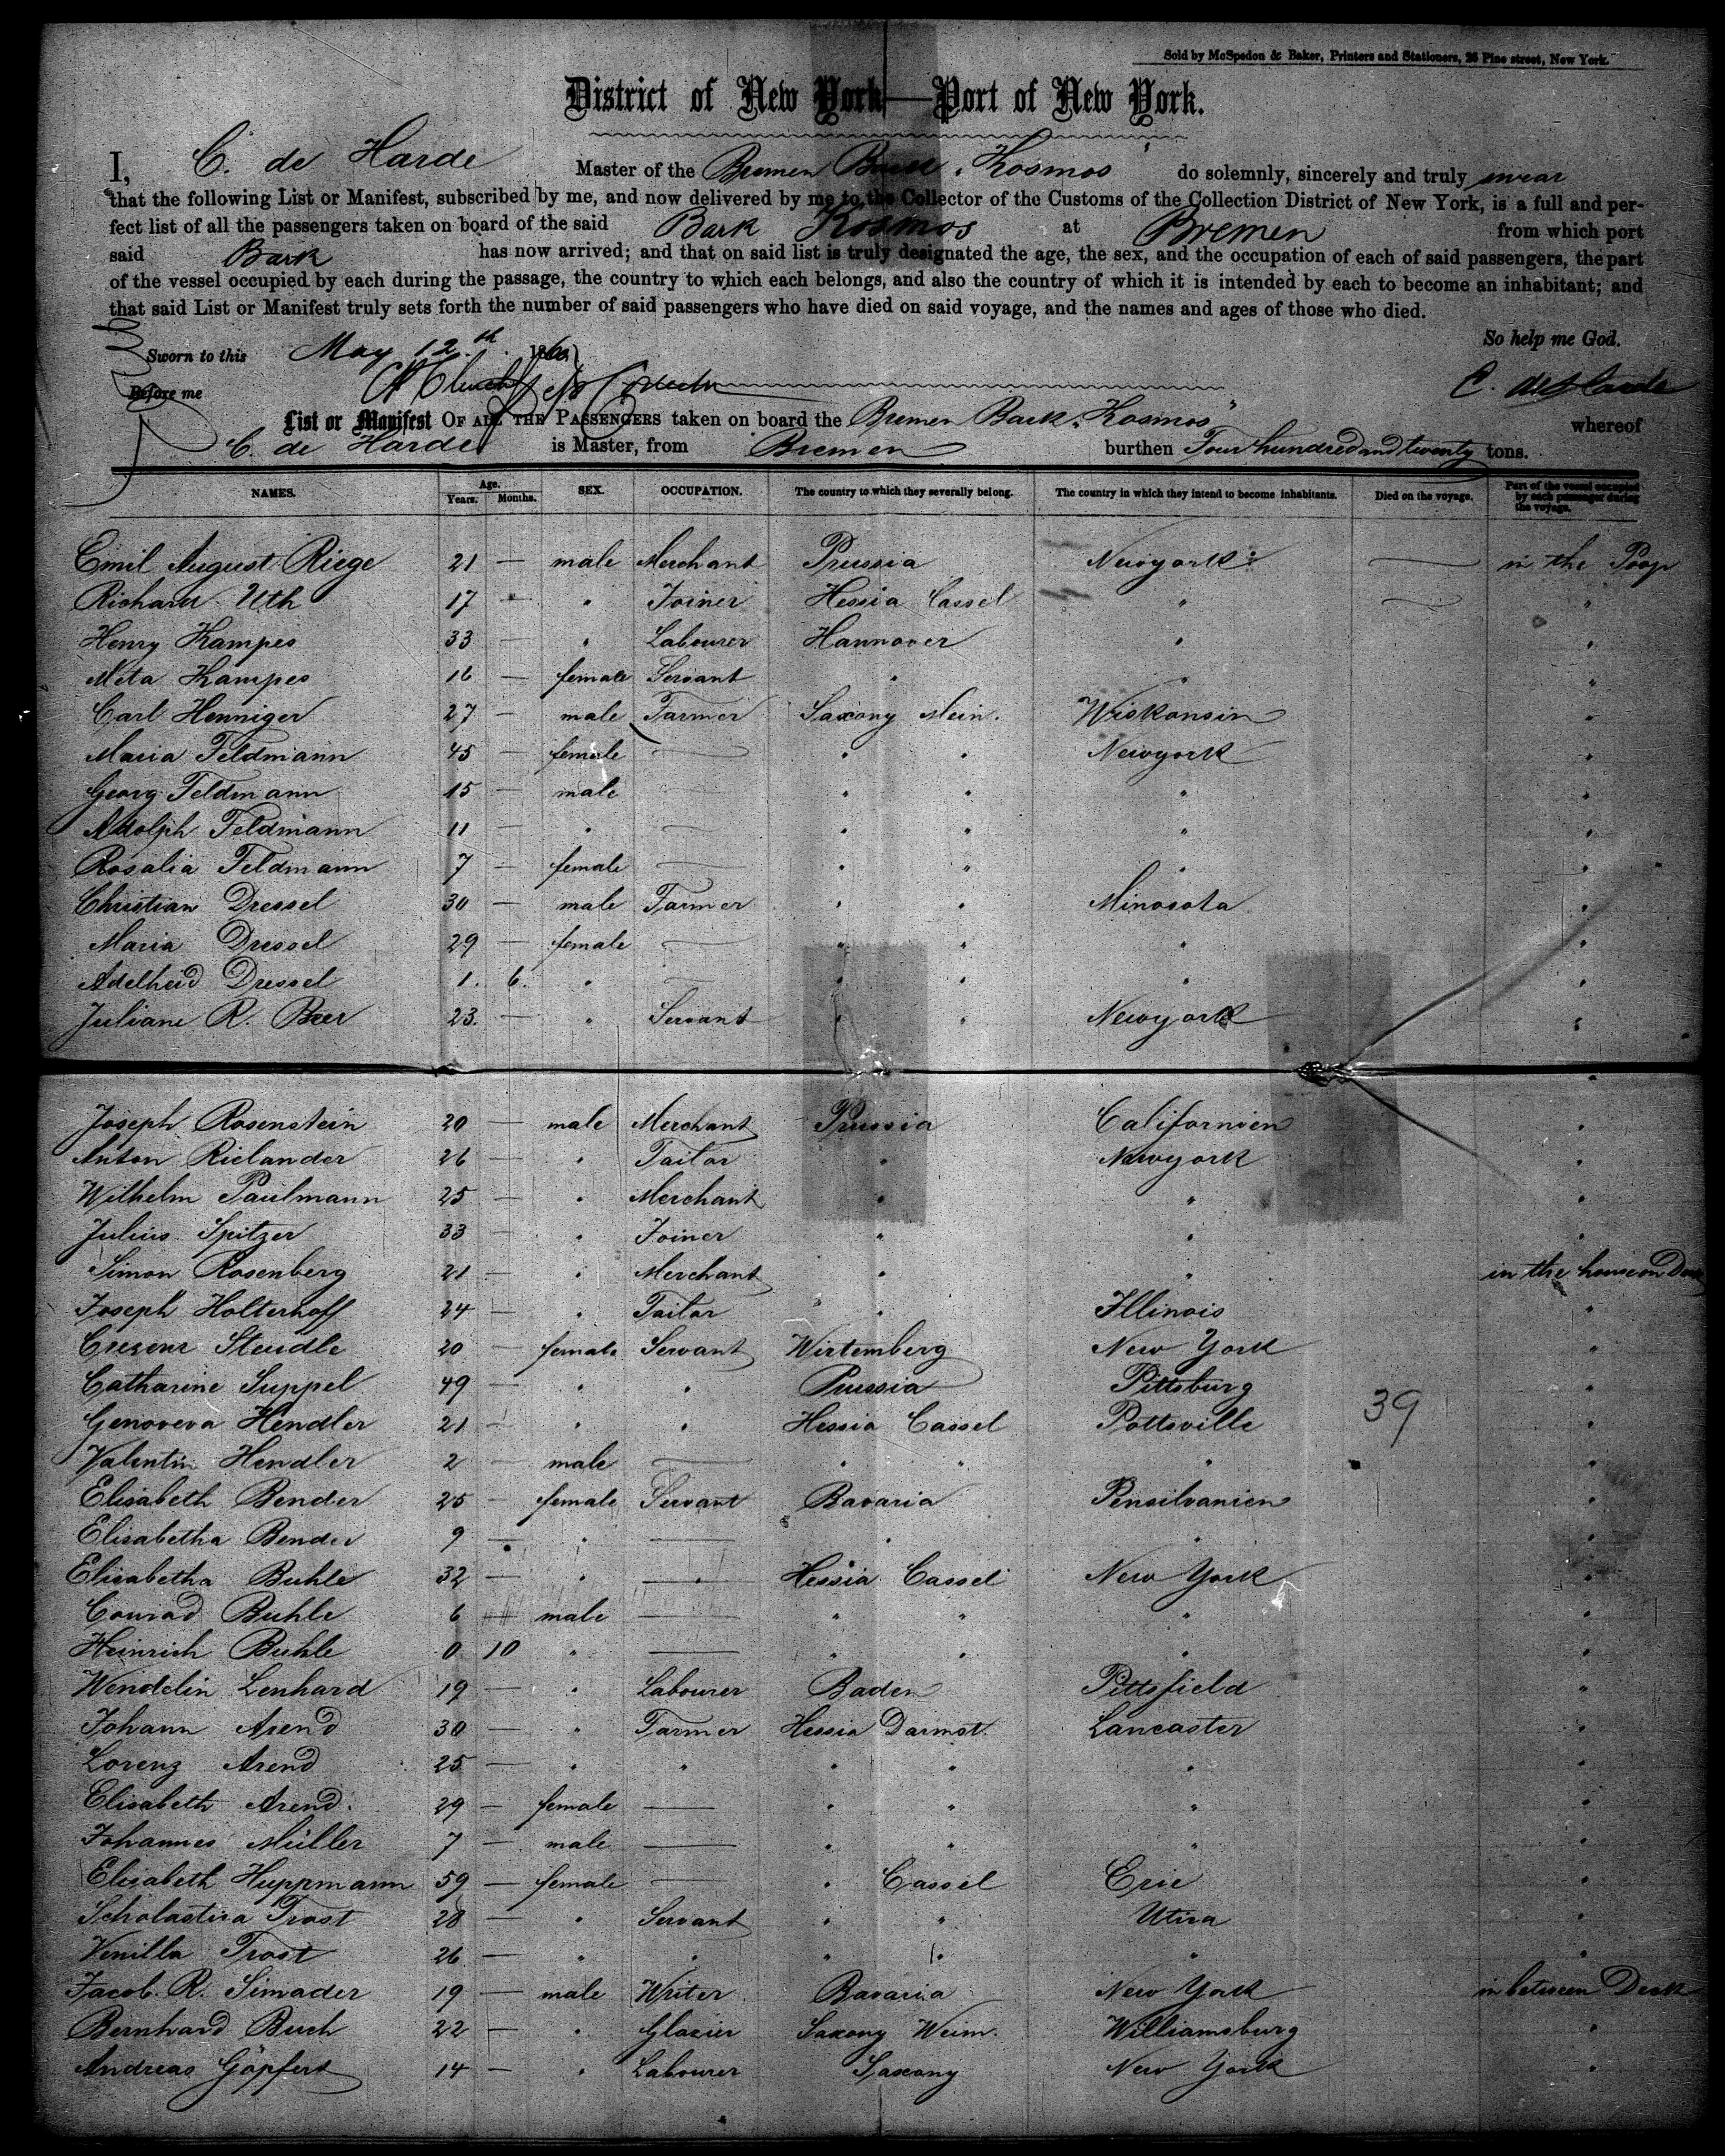 Sold by McSpedon & Baker, Printers and Stationers, 25 Pine street, New York.
District of New York—Port of New York.
I, C. de Harde Master of the Bremen Bark "Kosmos" do solemnly, sincerely and truly swear
that the following List or Manifest, subscribed by me, and now delivered by me to the Collector of the Customs of the Collection District of New York, is a full and per-
fect list of all the passengers taken on board of the said Bark Kosmos at Bremen from which port
said Bark has now arrived; and that on said list is truly designated the age, the sex, and the occupation of each of said passengers, the part
of the vessel occupied by each during the passage, the country to which each belongs, and also the country of which it is intended by each to become an inhabitant; and
that said List or Manifest truly sets forth the number of said passengers who have died on said voyage, and the names and ages of those who died.
So help me God.
Sworn to this May 12th. 1860
Before me C. de Harde
List or Manifest OF ALL THE PASSENGERS taken on board the Bremen Bark "Kosmos" whereof
C. de Harde is Master, from Bremen burthen Four hundred and twenty tons.
NAMES. Age. Years. Months. SEX. OCCUPATION. The country to which they severally belong. The country in which they intend to become inhabitants. Died on the voyage. Part of the vessel occupied by each passenger during the voyage.
Emil August Riege 21 — male Merchant Prussia Newyork — in the Poop
Richard Uth 17 — " Joiner Hessia Cassel " — "
Henry Kampes 33 — " Labourer Hannover " "
Meta Kampes 16 — female Servant " " "
Carl Henniger 27 — male Farmer Saxony Mein. Wiskonsin "
Maria Feldmann 45 — female — " " Newyork "
Georg Feldmann 15 — male — " " " "
Adolph Feldmann 11 — " — " " " "
Rosalia Feldmann 7 — female — " " " "
Christian Dressel 30 — male Farmer " " Minosota "
Maria Dressel 29 — female — " " " "
Adelheid Dressel 1. 6. " — " " " "
Juliane R. Beer 23. " Servant " " Newyork "
Joseph Rosenstein 20 — male Merchant Prussia Californien "
Anton Rielander 26 — " Tailor " Newyork "
Wilhelm Paulmann 25 — " Merchant " " "
Julius Spitzer 33 — " Joiner " " "
Simon Rosenberg 21 — " Merchant " " in the house on Deck
Joseph Holterhoff 24 — " Tailor " Illinois "
Cresenz Steudle 20 — female Servant Wirtemberg New York "
Catharine Suppel 49 — " " Prussia Pittsburg "
Genoveva Hendler 21 — " " Hessia Cassel Pottsville 39 "
Valentin Hendler 2 — male — " " " "
Elisabeth Bender 25 — female Servant Bavaria Pensilvanien "
Elisabetha Bender 9 — " — " " "
Elisabetha Buhle 32 — " — Hessia Cassel New York "
Conrad Buhle 6 male — " " " "
Heinrich Buhle 0 10 " — " " " "
Wendelin Lenhard 19 — " Labourer Baden Pittsfield "
Johann Arend 30 — " Farmer Hessia Darmst. Lancaster "
Lorenz Arend 25 — " " " " " "
Elisabeth Arend 29 — female — " " " "
Johannes Müller 7 — male — " " " "
Elisabeth Huppmann 59 — female — " Cassel Erie "
Scholastica Trost 28 — " Servant " " Utica "
Venilla Trost 26 — " " " " " "
Jacob R. Simader 19 — male Writer Bavaria New York in between Deck
Bernhard Buch 22 — " Glazier Saxony Weim. Williamsburg "
Andreas Göpfert 14 — " Labourer Saxony New York "